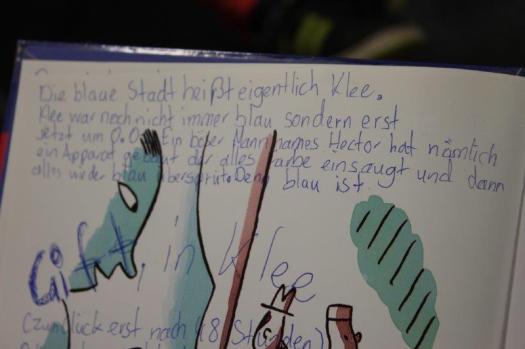 Die blaue Stadt heißt eigentlich Klee.
Klee war noch nicht immer blau sondern erst
jetzt um 0.00 Ein böser Mann names Hector hat nämlich
ein Apparat gebaut der alles Farbe einsaugt und dann
alles wieder blau blau ist.
Gift, in Klee
(zum Glück erst nach 48 Stunden)